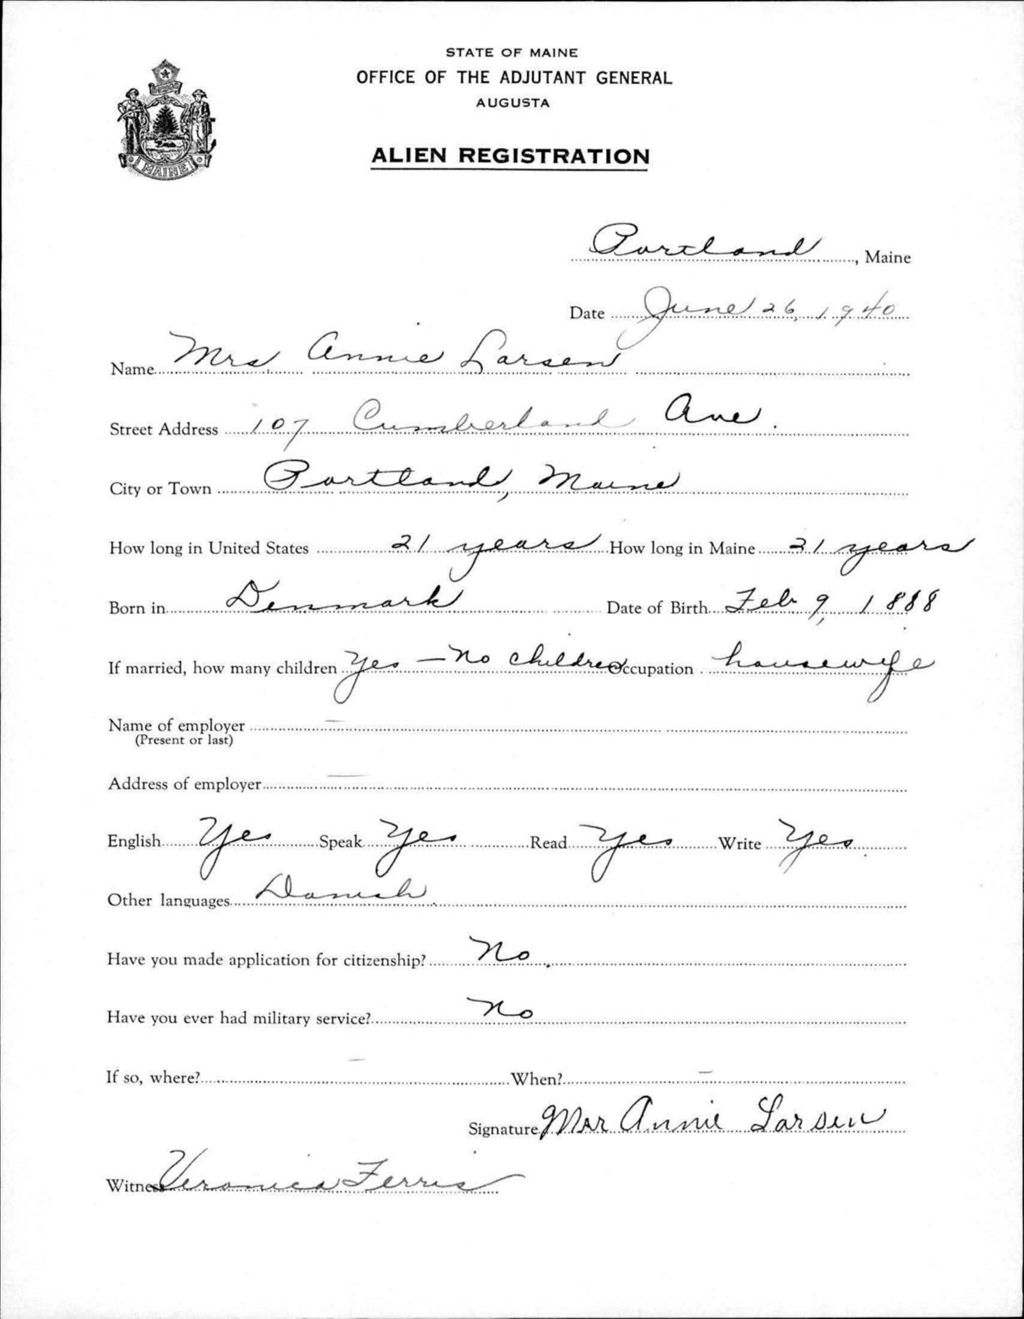 STATE OF MAINE
OFFICE OF THE ADJUTANT GENERAL
AUGUSTA
ALIEN REGISTRATION
MAINE
Portland, Maine
Date June 26, 1940
Name Mrs. Annie Larsen
Street Address 107 Cumberland Ave.
City or Town Portland, Maine
How long in United States 21 years How long in Maine 21 years
Born in Denmark Date of Birth Feb 9, 1888
If married, how many children Yes — No children Occupation housewife
Name of employer —
(Present or last)
Address of employer —
English Yes Speak Yes Read Yes Write Yes
Other languages Danish
Have you made application for citizenship? No
Have you ever had military service? No
If so, where? — When? —
Signature Mrs Annie Larsen
Witness Veronica Ferris